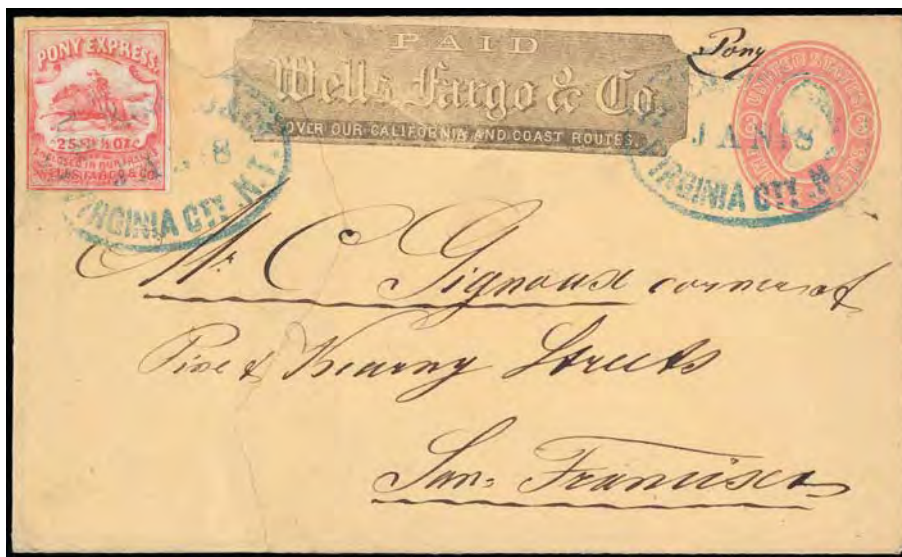 PONY EXPRESS.
25¢ ½ OZ
ENCLOSED IN OUR FRANKS
WELLS, FARGO & CO.
8
VIRGINIA CTY. N.T.
PAID
Wells, Fargo & Co.
OVER OUR CALIFORNIA AND COAST ROUTES.
Pony
UNITED STATES
JAN 18
VIRGINIA CTY. N.
Mr C Signoux corner of
Pine & Kearny Streets
San Francisco